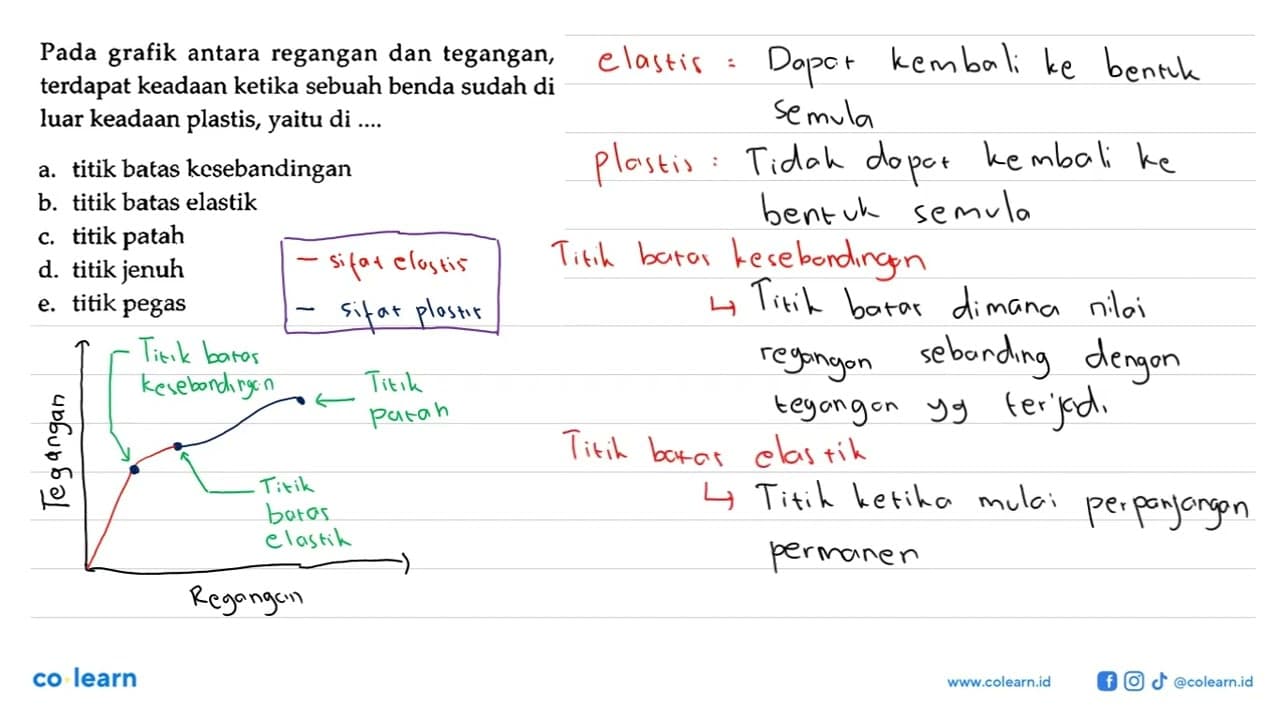 Pada grafik antara regangan dan tegangan,
terdapat keadaan ketika sebuah benda sudah di
luar keadaan plastis, yaitu di ....
a. titik batas kesebandingan
b. titik batas elastik
c. titik patah
d. titik jenuh
e. titik pegas
- sifat elastis
- sifat plastis
Titik batas
kesebandingan
Titik
patah
Titik
batas
elastik
Tegangan
Regangan
elastis : Dapat kembali ke bentuk
semula
plastis : Tidak dapat kembali ke
bentuk semula
Titik batas kesebandingan
↳ Titik batas dimana nilai
regangan sebanding dengan
tegangan yg terjadi
Titik batas elastik
↳ Titik ketika mulai perpanjangan
permanen
co learn
www.colearn.id @colearn.id